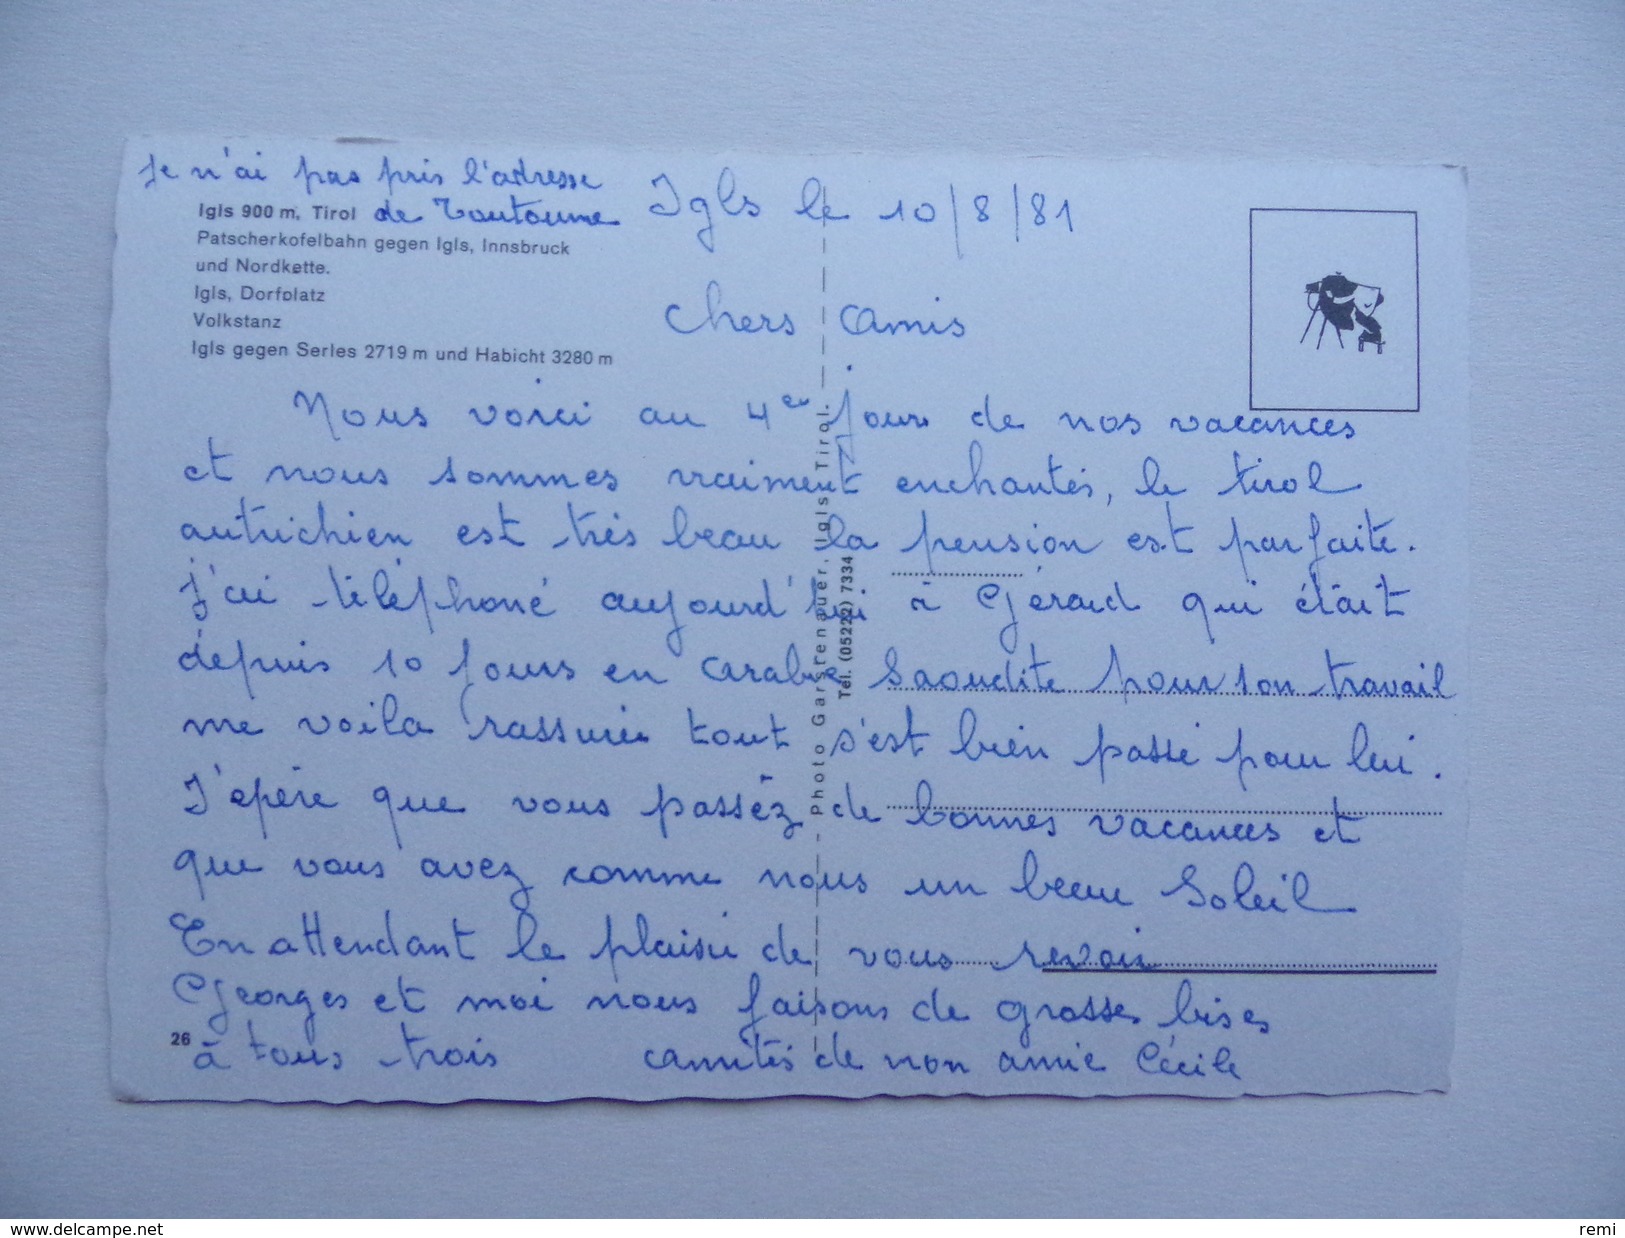 Je n'ai pas pris l'adresse
de Toutoune
Igls 900 m, Tirol
Patscherkofelbahn gegen Igls, Innsbruck
und Nordkette.
Igls, Dorfplatz
Volkstanz
Igls gegen Serles 2719 m und Habicht 3280 m
Igls le 10/8/81
Chers Amis
Nous voici au 4e jour de nos vacances
et nous sommes vraiment enchantés, le tirol
autrichien est très beau la pension est parfaite.
J'ai téléphoné aujourd'hui à Gérard qui était
depuis 10 jours en Arabie Saoudite pour son travail
me voila rassurée tout s'est bien passé pour lui.
J'epère que vous passez de bonnes vacances et
que vous avez comme nous un beau Soleil
En attendant le plaisir de vous revoir
Georges et moi nous faisons de grosses bises
à tous trois amitiés de non amie Cécile
26
Photo Garstenauer, Igls Tirol.
Tel. (05222) 7334
www.delcampe.net
remi